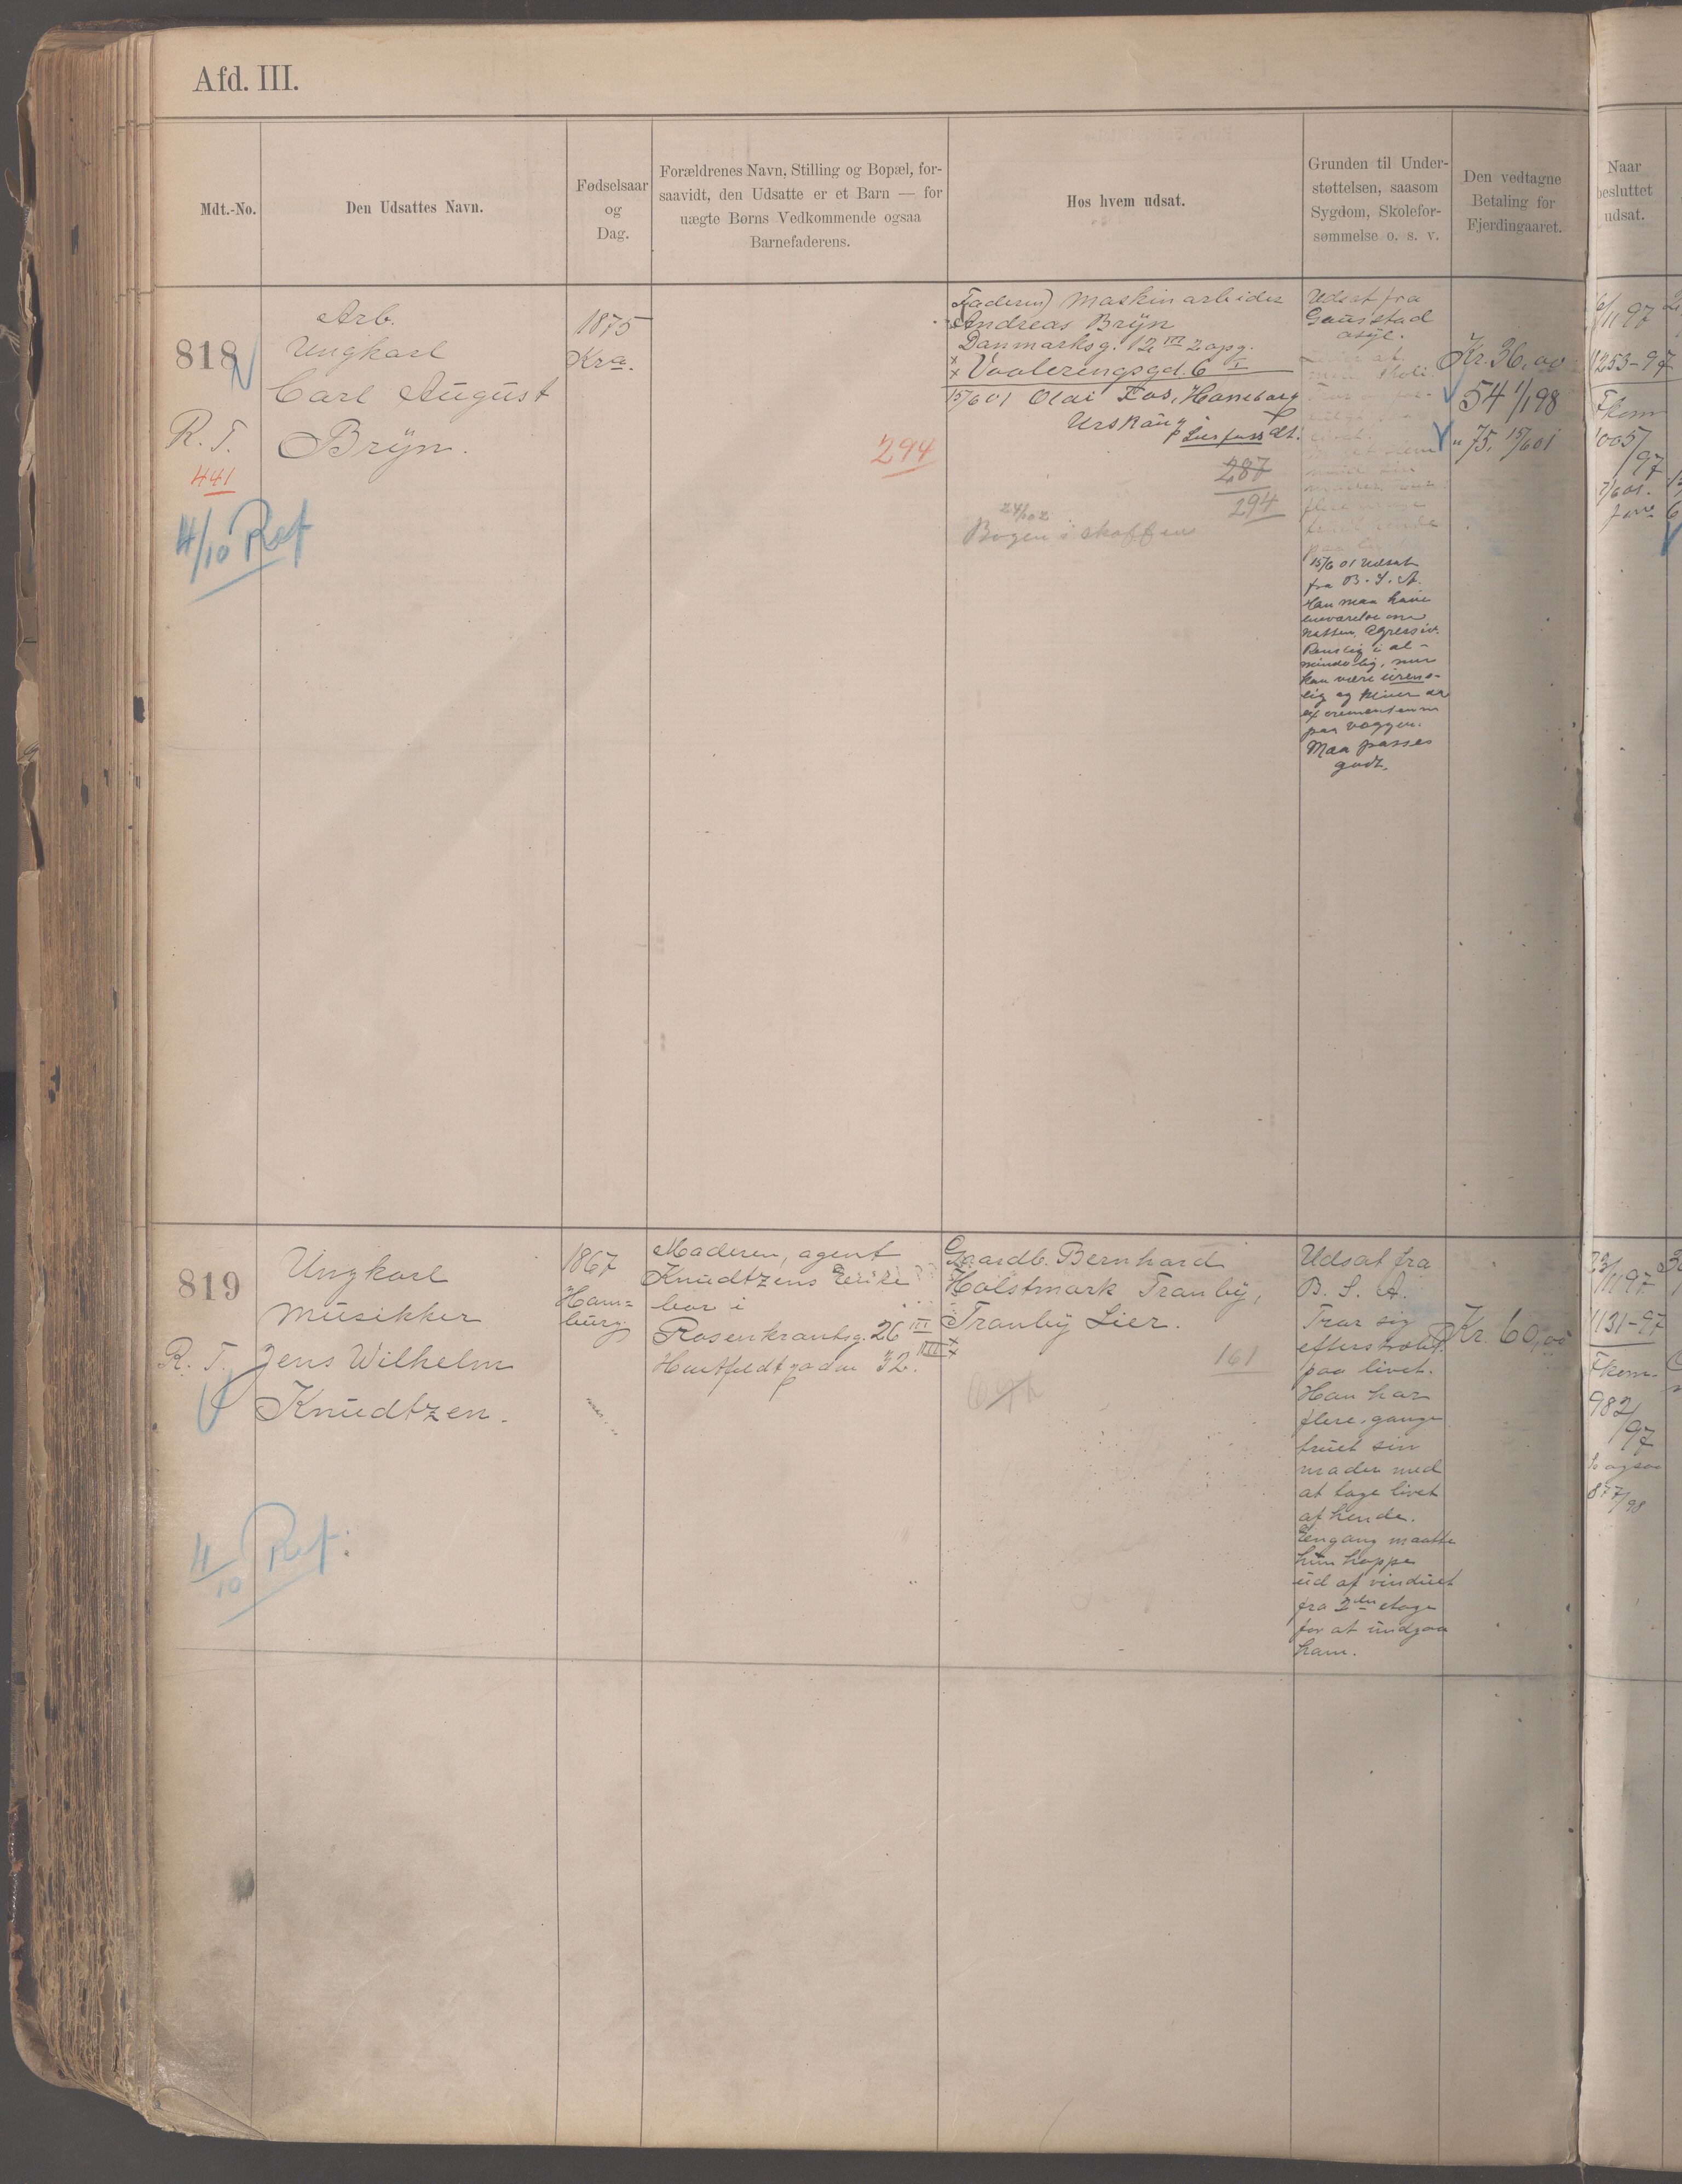 Afd. III.
Mdt.-No.
Den Udsattes Navn.
Fødselsaar
og
Dag.
Forældrenes Navn, Stilling og Bopæl, for-
saavidt, den Udsatte er et Barn — for
uægte Børns Vedkommende ogsaa
Barnefaderens.
Hos hvem udsat.
Grunden til Under-
støttelsen, saasom
Sygdom, Skolefor-
sømmelse o. s. v.
Den vedtagne
Betaling for
Fjerdingaaret.
Naar
besluttet
udsat.
818
R. T.
441
4/10 Ref
Arb.
Ungkarl
Carl August
Brÿn.
1875
Kra.
294
Faderen) Maskinarbeider
Andreas Brÿn
Danmarksg. 12 III 2 opg.
Vaaleringsgd. 6 I
15/6 01 Olai Fos, Haneborg
Urskaug
287
294
24/102
Bogen i skuffen
Udsat fra
Gaustad
asÿl.
15/6 01 Udsat
fra B. S. A.
Han maa have
bevarelse om
Natten. Agressiv.
Renslig i al-
mindelig, men
kan være urens-
lig og kliner
excrementerne
paa væggen.
Maa passes
godt.
Kr. 36,00
54 1/1 98
" 75, 15/6 01
11 97
1253-97
Fkom
1005/
97
7/6 01.
819
R. T.
4/10 Ref:
Ungkarl
Musikker
Jens Wilhelm
Knudtzen.
1867
Ham=
burg.
Moderen, agent
Knudtzens Enke
bor i
Rosenkrantsg. 26 III
Huitfeldtgaden 32. III
Gaardb. Bernhard
Holstmark Tranbÿ,
Tranbÿ Lier.
161
Udsat fra
B. S. A.
Tror sig
efterstræbt
paa livet.
Han har
flere gange
truet sin
moder med
at tage livet
af hende.
Eengang maatte
hun hoppe
ud af vinduet
fra 2den etage
for at undgaa
ham.
Kr. 60,00
23/11 97
1131-97
Fkom.
982/
97
877/98